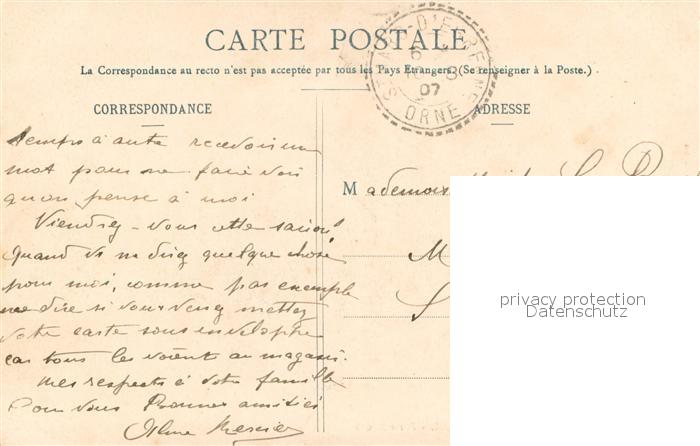 CARTE POSTALE
La Correspondance au recto n'est pas acceptée par tous les Pays Etrangers. (Se renseigner à la Poste.)
CORRESPONDANCE
ADRESSE
ORNE
07
temps à autre recevoir un
mot pour me faire voir
qu'on pense à moi
Viendrez-vous cette saison!
Quand vs me direz quelque chose
pour moi, comme par exemple
me dire si vous venez mettez
votre carte sous enveloppe
car tous les voient au magasin.
Mes respects à votre famille
Pour vous Bonnes amitiés
Mercier
Mademois
M
S
privacy protection
Datenschutz